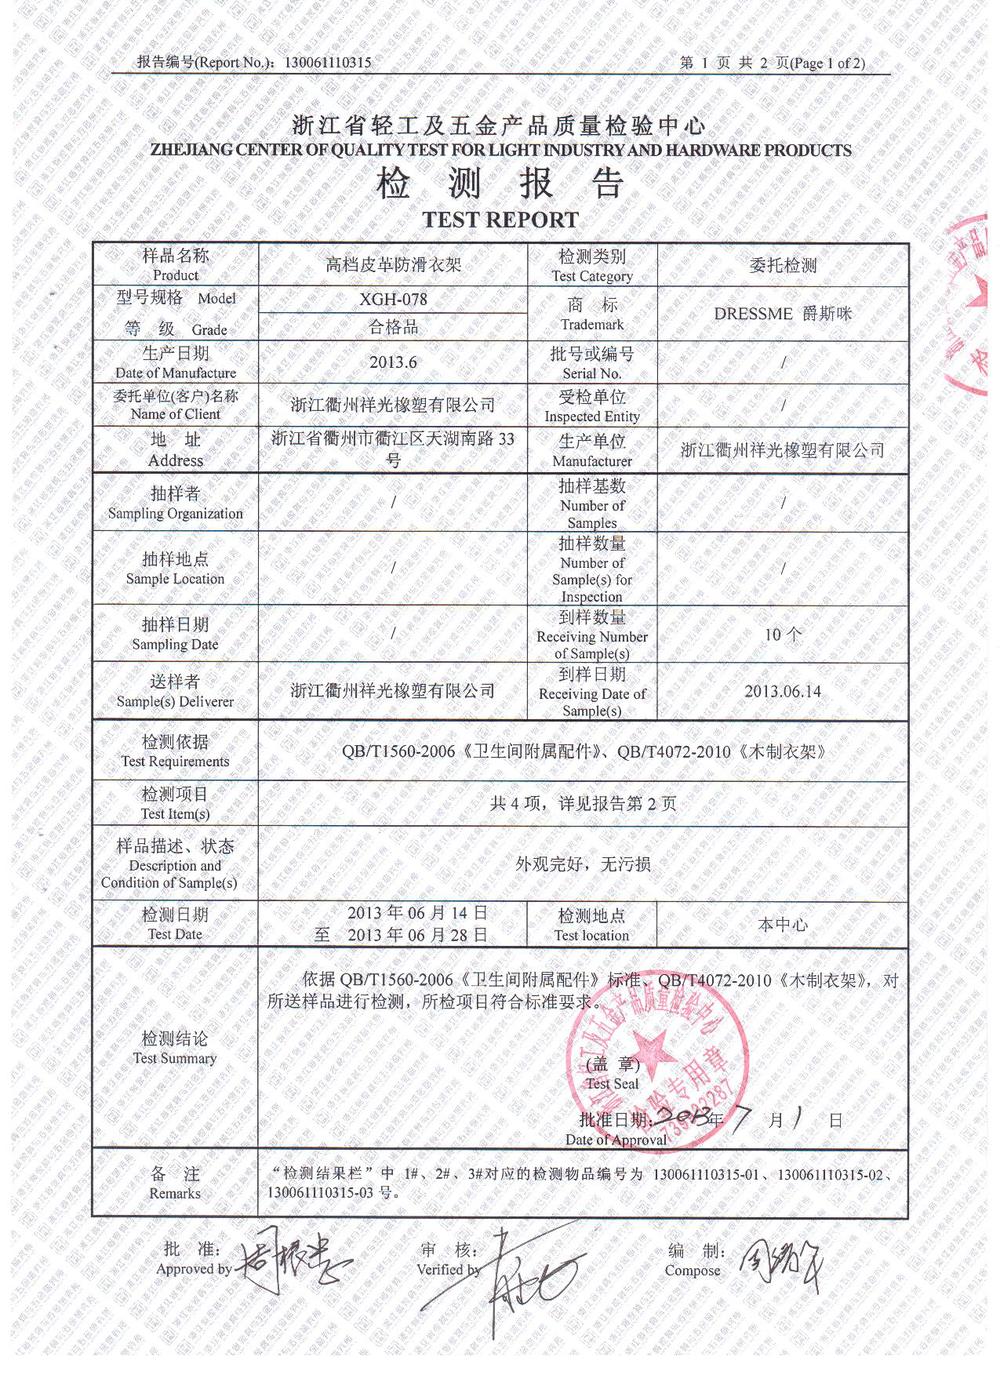 报告编号(Report No.): 130061110315
第 1 页 共 2 页(Page 1 of 2)
浙江省轻工及五金产品质量检验中心
ZHEJIANG CENTER OF QUALITY TEST FOR LIGHT INDUSTRY AND HARDWARE PRODUCTS
检 测 报 告
TEST REPORT
样品名称
Product
高档皮革防滑衣架
检测类别
Test Category
委托检测
型号规格 Model
XGH-078
等 级 Grade
合格品
商 标
Trademark
DRESSME 爵斯咪
生产日期
Date of Manufacture
2013.6
批号或编号
Serial No.
/
委托单位(客户)名称
Name of Client
浙江衢州祥光橡塑有限公司
受检单位
Inspected Entity
/
地 址
Address
浙江省衢州市衢江区天湖南路 33
号
生产单位
Manufacturer
浙江衢州祥光橡塑有限公司
抽样者
Sampling Organization
/
抽样基数
Number of
Samples
/
抽样地点
Sample Location
/
抽样数量
Number of
Sample(s) for
Inspection
/
抽样日期
Sampling Date
/
到样数量
Receiving Number
of Sample(s)
10 个
送样者
Sample(s) Deliverer
浙江衢州祥光橡塑有限公司
到样日期
Receiving Date of
Sample(s)
2013.06.14
检测依据
Test Requirements
QB/T1560-2006《卫生间附属配件》、QB/T4072-2010《木制衣架》
检测项目
Test Item(s)
共 4 项，详见报告第 2 页
样品描述、状态
Description and
Condition of Sample(s)
外观完好，无污损
检测日期
Test Date
2013 年 06 月 14 日
至 2013 年 06 月 28 日
检测地点
Test location
本中心
检测结论
Test Summary
依据 QB/T1560-2006《卫生间附属配件》标准、QB/T4072-2010《木制衣架》，对
所送样品进行检测，所检项目符合标准要求。
(盖 章)
Test Seal
检验专用章
批准日期: 2013年 7 月 1 日
Date of Approval
备 注
Remarks
“检测结果栏”中 1#、2#、3#对应的检测物品编号为 130061110315-01、130061110315-02、
130061110315-03 号。
批 准:
Approved by
审 核:
Verified by
编 制:
Compose